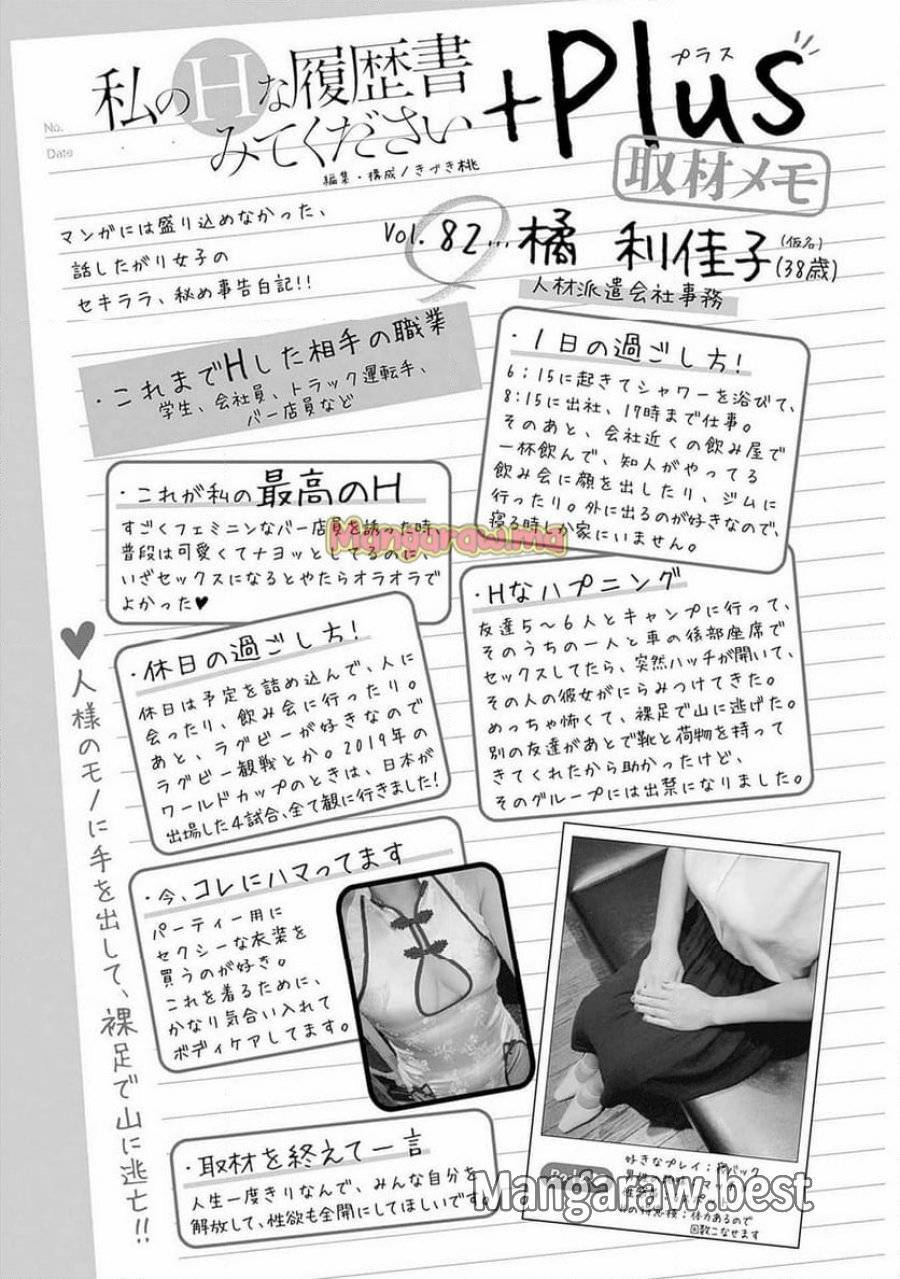 私のHな履歴書
みてください
+Plus
プラス
取材メモ
No.
Date
編集・構成/きづき桃
マンガには盛り込めなかった、
話したがり女子の
セキララ、秘め事告白記!!
Vol. 82… 橘 利佳子
(仮名)
(38歳)
人材派遣会社事務
・これまでHした相手の職業
学生、会社員、トラック運転手、
バー店員など
・1日の過ごし方!
6:15に起きてシャワーを浴びて、
8:15に出社、17時まで仕事。
そのあと、会社近くの飲み屋で
一杯飲んで、知人がやってる
飲み会に顔を出したり、ジムに
行ったり。外に出るのが好きなので、
寝る時しか家にいません。
・これが私の最高のH
すごくフェミニンなバー店員を誘った時、
普段は可愛くてナヨッとしてるのに、
いざセックスになるとやたらオラオラで
よかった♥
Mangaraw.ma
・Hなハプニング
友達5〜6人とキャンプに行って、
そのうちの一人と車の後部座席で
セックスしてたら、突然ハッチが開いて、
その人の彼女がにらみつけてきた。
めっちゃ怖くて、裸足で山に逃げた。
別の友達があとで靴と荷物を持って
きてくれたから助かったけど、
そのグループには出禁になりました。
・休日の過ごし方!
休日は予定を詰め込んで、人に
会ったり、飲み会に行ったり。
あと、ラグビーが好きなので
ラグビー観戦とか。2019年の
ワールドカップのときは、日本が
出場した4試合、全て観に行きました!
♥人様のモノに手を出して、裸足で山に逃亡!!
・今、コレにハマってます
パーティー用に
セクシーな衣装を
買うのが好き。
これを着るために、
かなり気合い入れて
ボディケアしてます。
・取材を終えて一言
人生一度きりなんで、みんな自分を
解放して、性欲も全開にしてほしいです。
好きなプレイ:
バック
体力あるので
回数こなせます
Mangaraw.best